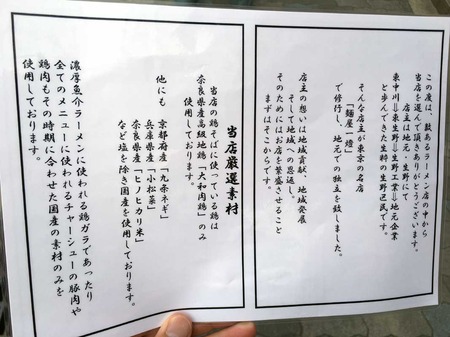 この度は、数あるラーメン店の中から
当店を選んで頂きありがとうございます。
店主は地元が生野にて
東中川⇒東生野⇒生野工業⇒地元企業
と歩んできた生粋の生野区民です。
そんな店主が東京の名店
「麺屋一燈」
で修行し、地元での独立を致しました。
店主の想いは地域貢献、地域発展
そして地域への恩返し。
そのためにはお店を繁盛させること
まずはそこからです。
当店厳選素材
当店の鶏そばに使っている鶏は
奈良県産高級地鶏「大和肉鶏」のみ
使用しております。
他にも
京都府産「九条ネギ」
兵庫県産「小松菜」
奈良県産「ヒノヒカリ米」
など塩を除き国産を使用しております。
濃厚魚介ラーメンに使われる鶏ガラであったり
全てのメニューに使われるチャーシューの豚肉や
鶏肉もその時期に合わせた国産の素材のみを
使用しております。